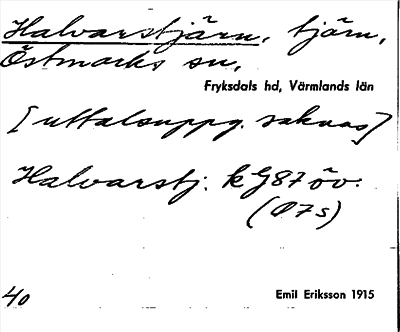 Halvarstjärn, tjärn,
Östmarks sn,
Fryksdals hd, Värmlands län
[uttalsuppg. saknas]
Halvarstj. kG87 öv.
(Ø7s)
40
Emil Eriksson 1915